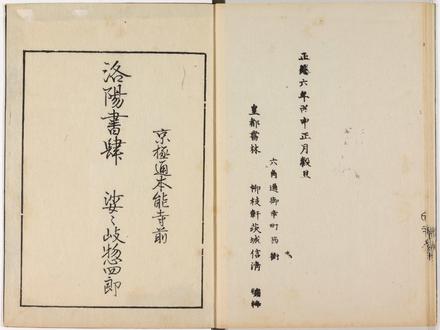 正德六年丙申正月穀旦
六角通御幸町西街
皇都書林 柳枝軒茨城信清
京極通本能寺前
洛陽書肆 娑〻岐惣四郎